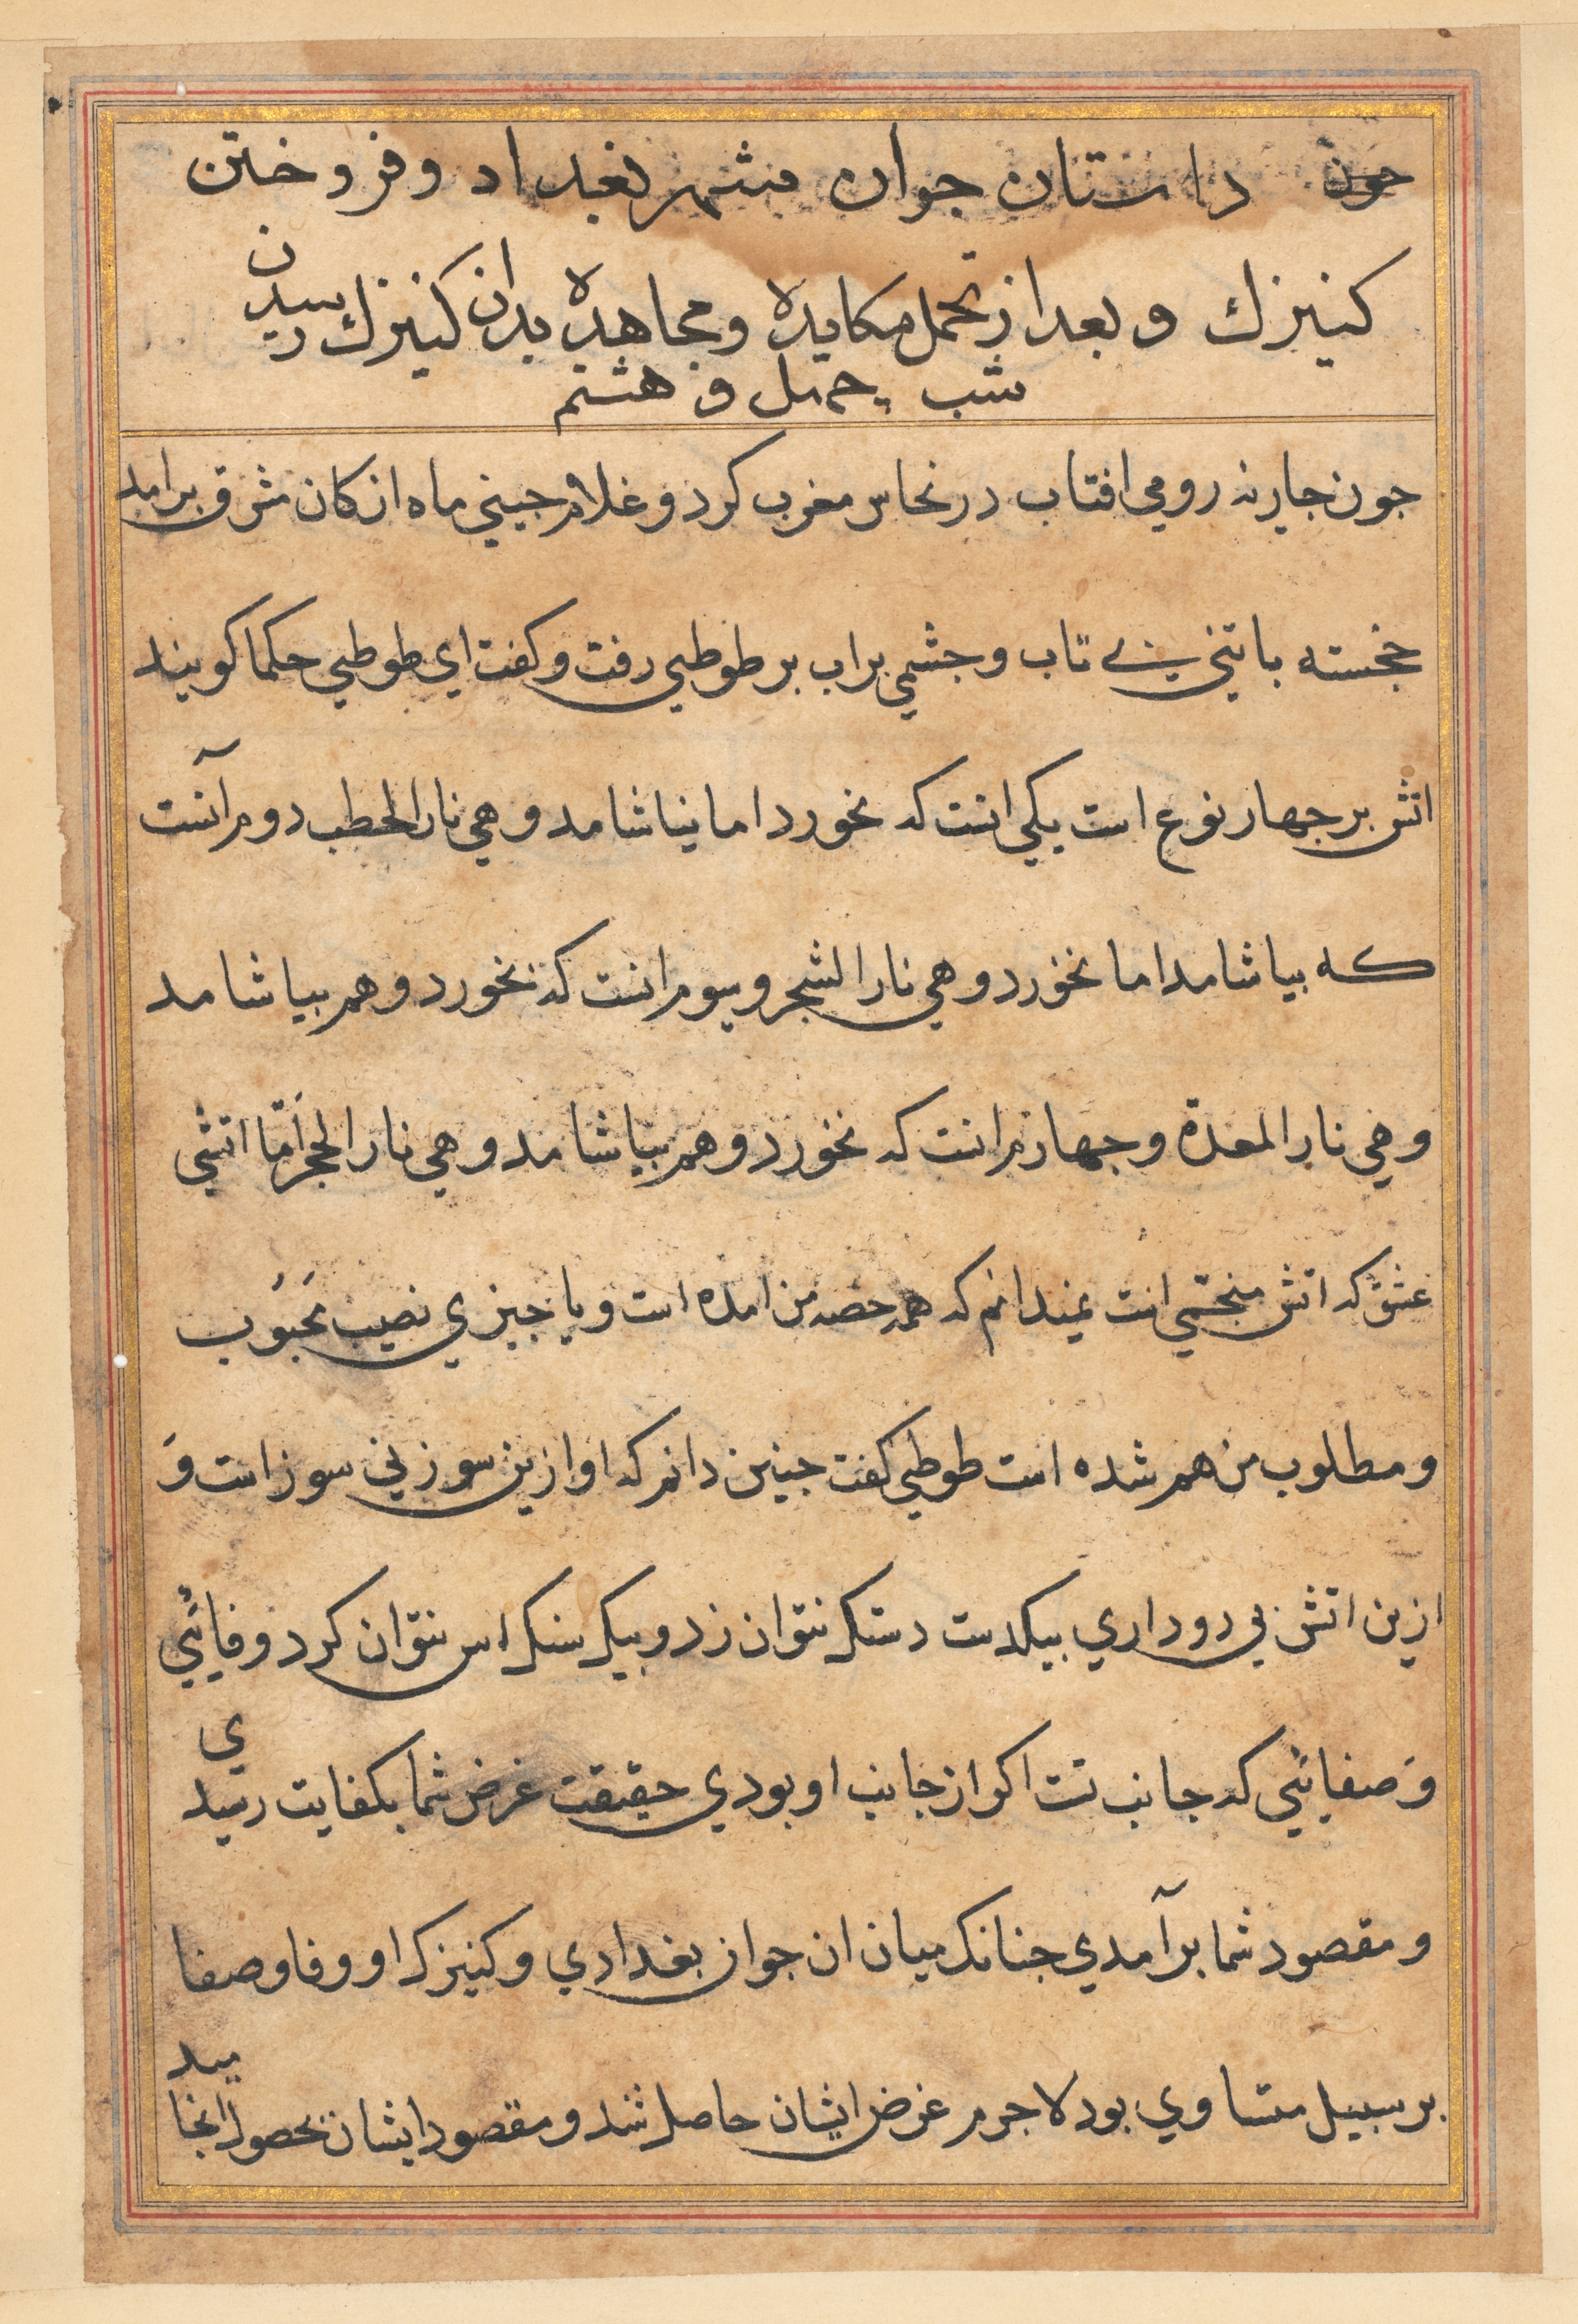 داستان جوان بشهر بغداد و فروختن
كنيزك و بعد از تحمل مكايده و مجاهده بدان كنيزك رسيدن
شب چهل و هشتم
جون جاريه رومي افتاب در نخاس مغرب كرد و غلام جيني ماه از كان مشرق برامد
خجسته با تني بي تاب و جشمي براب بر طوطي رفت و كفت اي طوطي حكما كويند
اتش بر جهار نوع است يكي انست كه بخورد اما نياشامد و هي نار الحطب دوم آنست
كه بياشامد اما نخورد و هي نار الشجر و سوم انست كه بخورد و هم بياشامد
و هي نار المعدة و جهارم انست كه نخورد و هم بياشامد و هي نار الحجر اَمّا اتشي
عشق كه اتش است نميدانم كه همه حصه من امده است و يا جيزي نصيب مَحبُوب
و مطلوب من هم شده است طوطي كفت جنين دانم كه او ازين سوز بي سوز است وَ
ازين اتش بي دود اري بيكدست دستك نتوان زد و بيك سنك اس نتوان كرد وفائي
وَ صفائي كه جانب تست اكر از جانب او بودي حقيقت غرض شما بكفايت رسيدي
و مقصود شما برآمدي جنانك ميان ان جوان بغدادي و كنيزك او وفا و صفا
بر سبيل متساوي بود لاجرم غرض ايشان حاصل شد و مقصود ايشان بحصول انجاميد